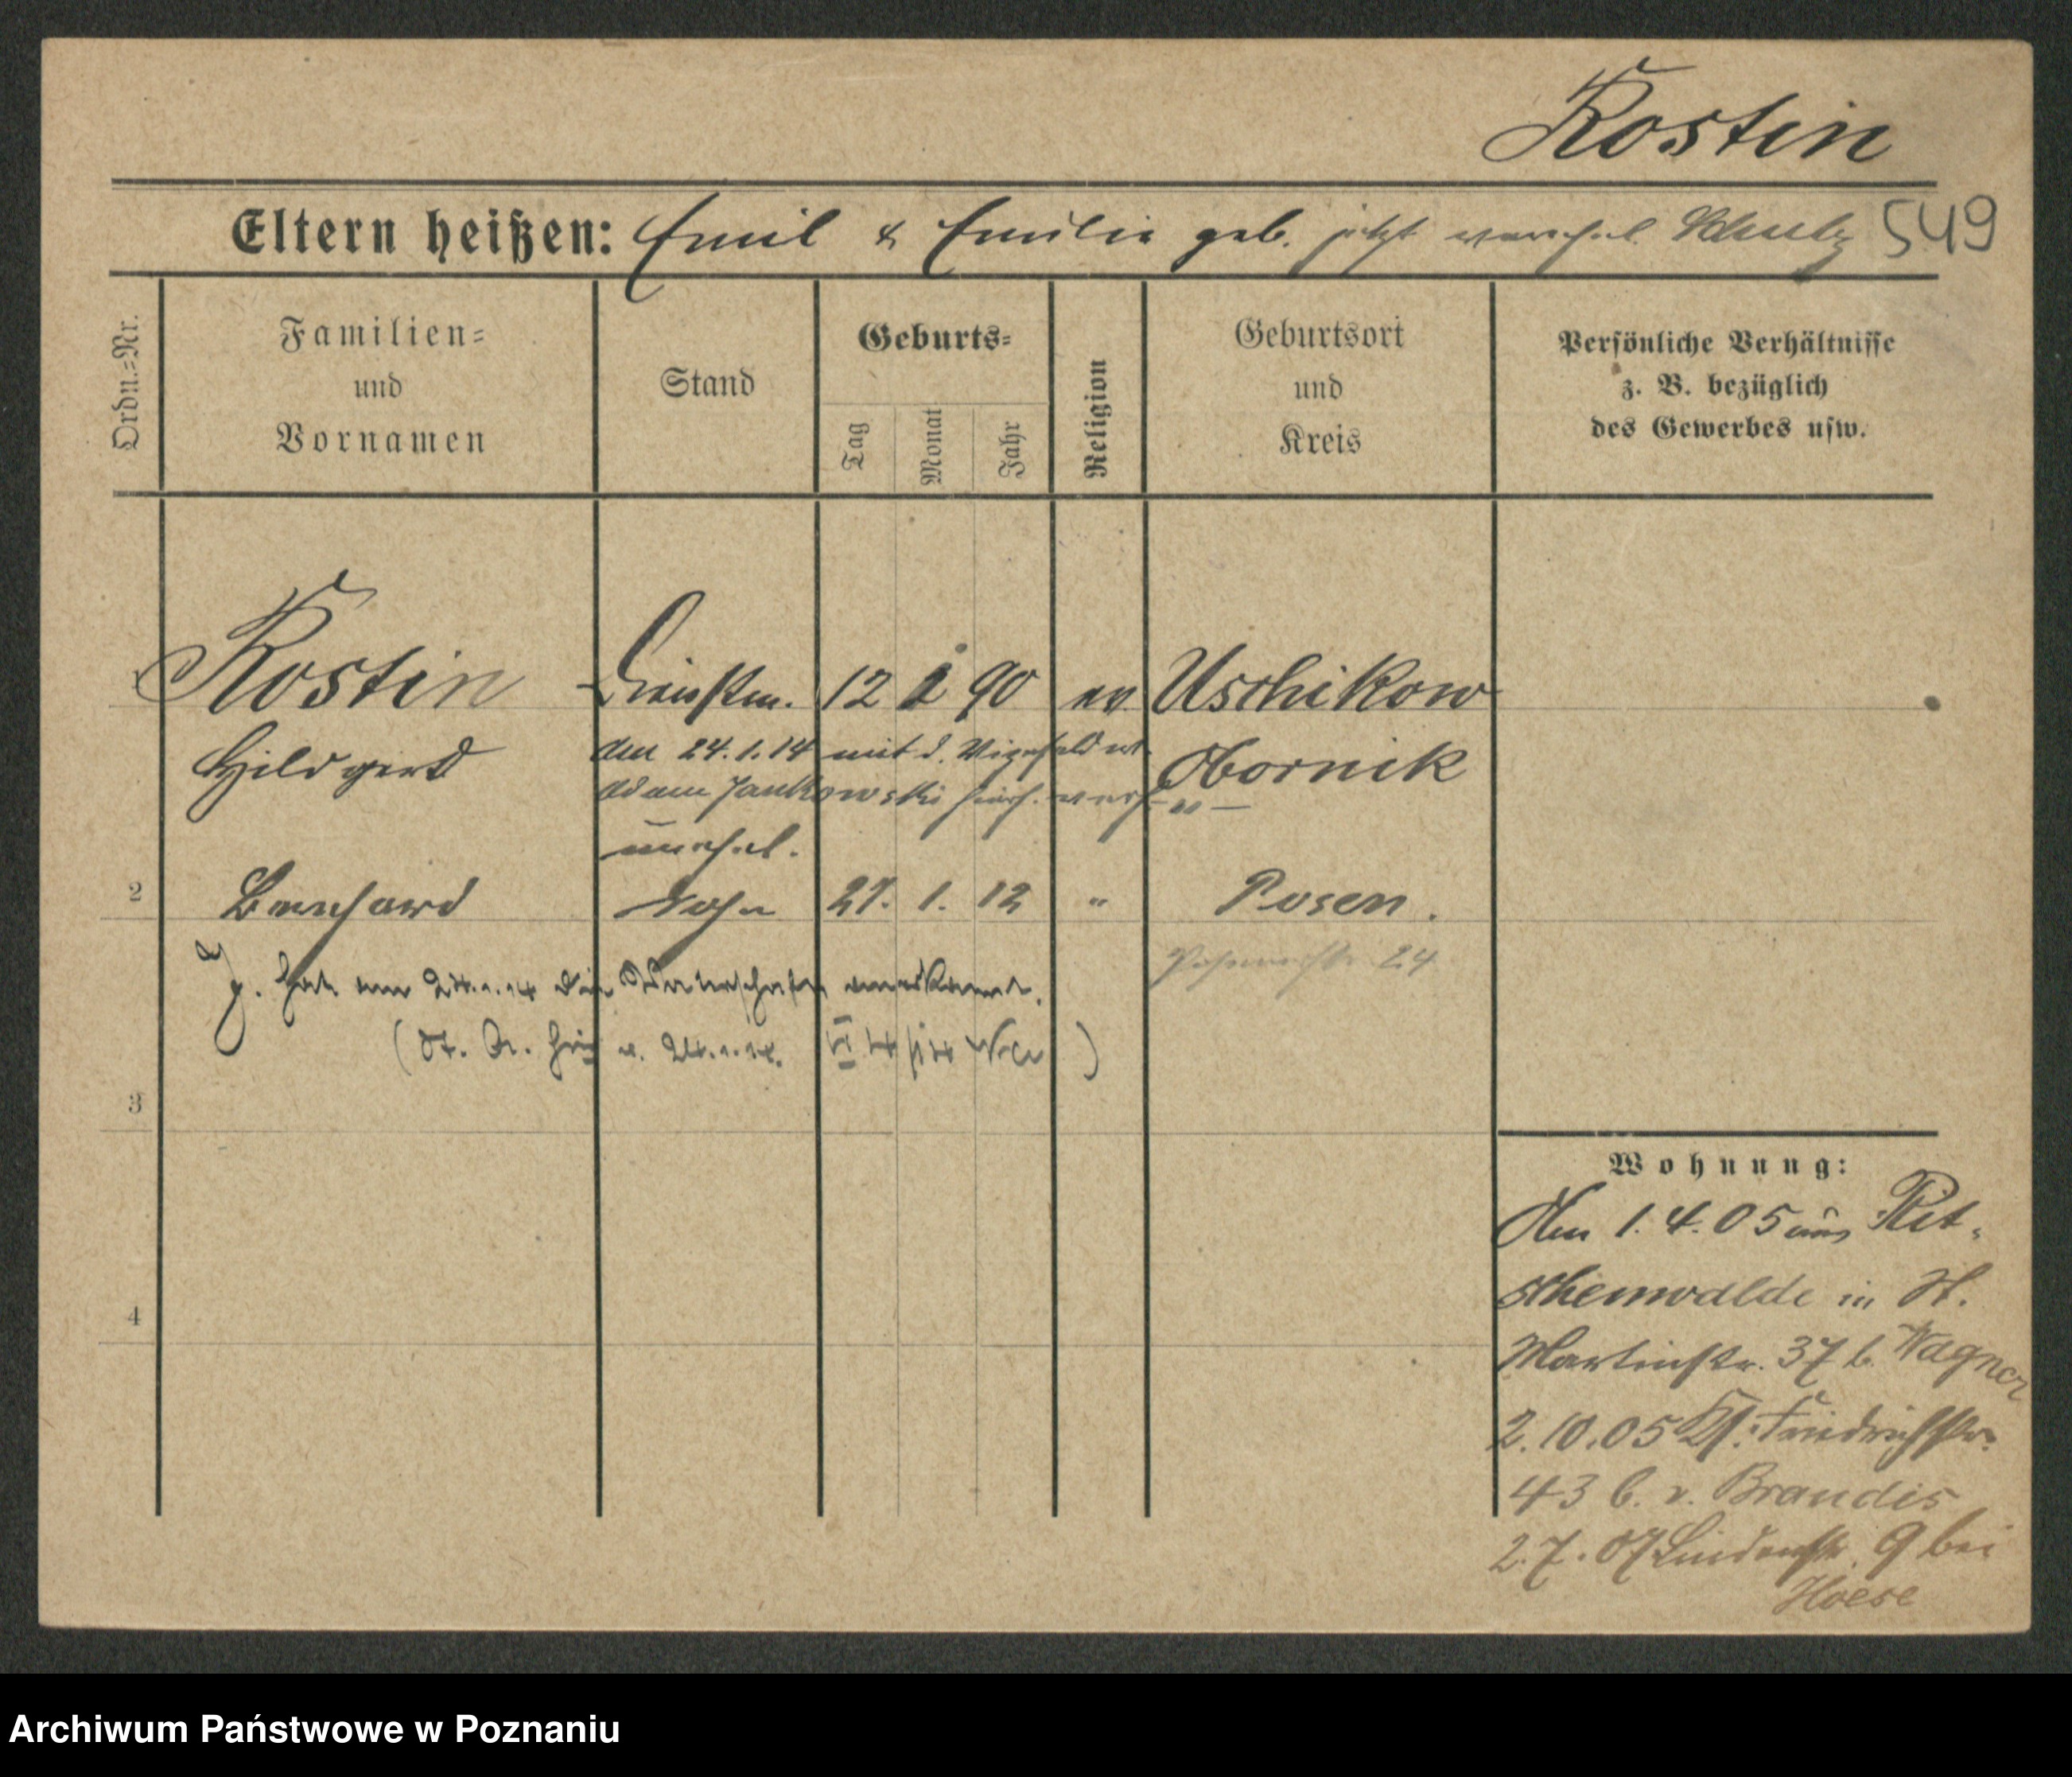 Kostin
Eltern heißen: Emil & Emilie geb. jetzt verehel. Schulz 549
Ordn.=Nr.
Familien=
und
Vornamen
Stand
Geburts=
Tag
Monat
Jahr
Religion
Geburtsort
und
Kreis
Persönliche Verhältnisse
z. B. bezüglich
des Gewerbes usw.
Kostin Dienstm. 12 1 90 ev Uschikow
Hildgard
Obornik
den 24.1.14 mit d.
Adam Jankowski hier. verh. " —
unehel.
2 Bernhard Sohn 27. 1. 12 " Posen.
J. hat am 24.1.14 die Vaterschaft anerkannt.
24
(St. A. v. 24.1.14. )
3
4
Wohnung:
Am 1.4.05 aus Rit-
schenwalde in St.
Martinstr. 37 b. Wagner
2.10.05 Friedrichstr.
43 b. v. Brandis
2.7.07 Lindenstr. 9 bei
Hoese
Archiwum Państwowe w Poznaniu